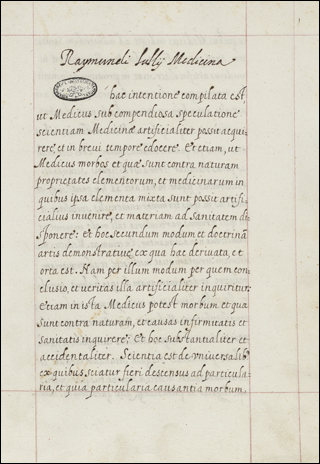 Raymundi Lullij Medicina
hac intentione compilata est,
ut Medicus sub compendiosa speculatione
scientiam Medicinæ artificialiter possit acqui-
rere et in brevi tempore edocere. Et etiam, ut
Medicus morbos et quæ sunt contra naturam
proprietates elementorum, et medicinarum in
quibus ipsa elementa mixta sunt possit artifi-
cialius invenire, et materiam ad sanitatem di-
sponere: Et hoc secundum modum et doctrinã
artis demonstrativæ, ex qua hæc derivata, et
orta est. Nam per illum modum per quem con-
clusio, et veritas illa artificialiter inquiritur:
Etiam in ista Medicus potest morbum, et quæ
sunt contra naturam, et causas infirmitatis et
sanitatis inquirere; Et hoc substantialiter et
accidentaliter. Scientia est de universalib'
ex quibus sciatur fieri descensus ad particula-
ria, et quia particularia causantia morbum,